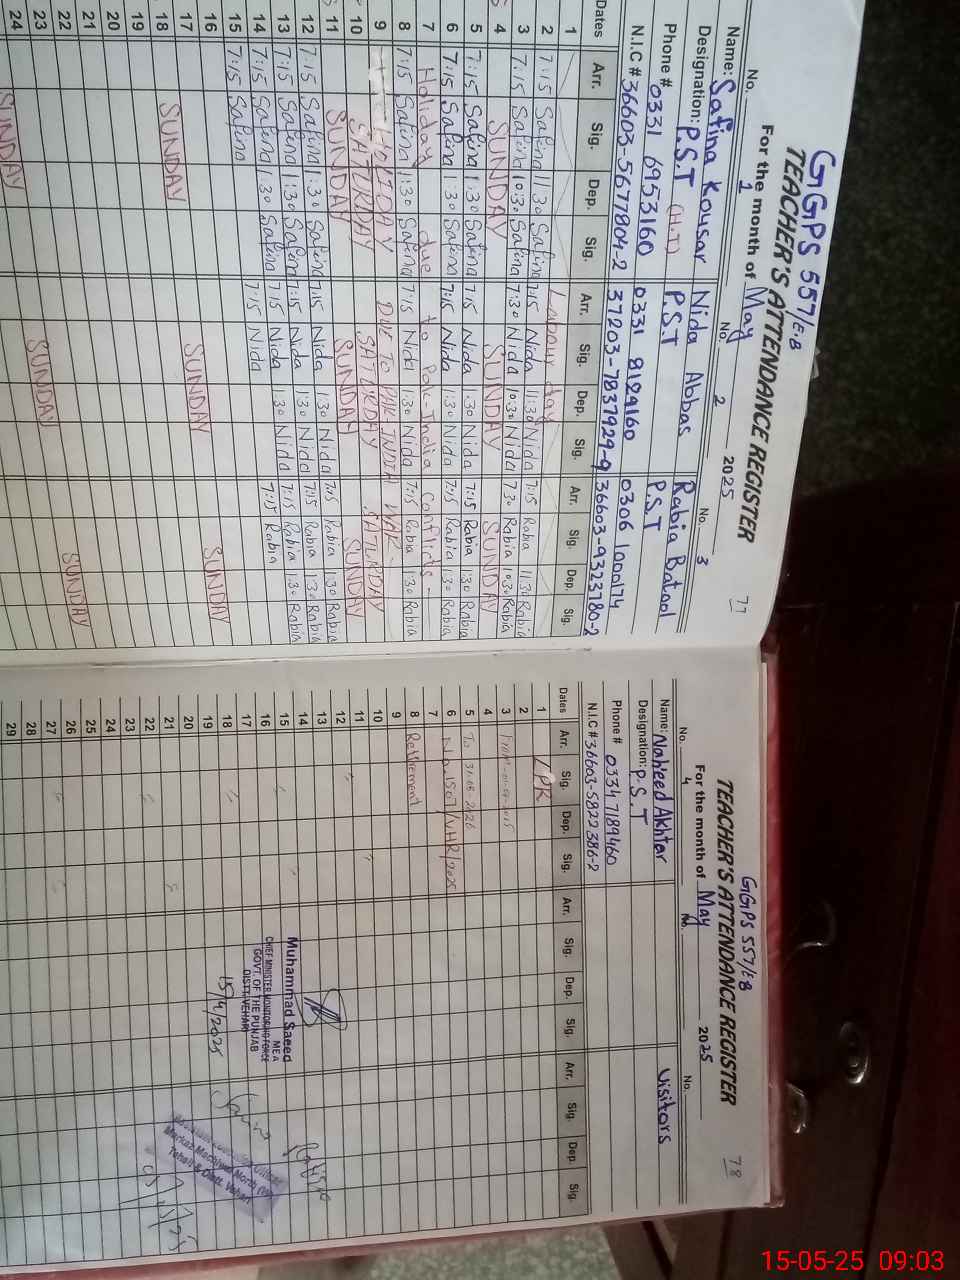 GGPS 557/E.B
77
TEACHER'S ATTENDANCE REGISTER
For the month of May 2025
No. 1 No. 2 No. 3
Name: Safina Kousar Nida Abbas Rabia Batool
Designation: P.S.T (H.T) P.S.T P.S.T
Phone # 0331 6953160 0331 8184160 0306 1000174
N.I.C # 36603-5677804-2 37203-7837929-9 36603-9323780-2
Dates Arr. Sig. Dep. Sig. Arr. Sig. Dep. Sig. Arr. Sig. Dep. Sig.
1 Labour day
2 7:15 Safina 11:30 Safina 7:15 Nida 11:30 Nida 7:15 Rabia 11:30 Rabia
3 7:15 Safina 10:30 Safina 7:30 Nida 10:30 Nida 7:30 Rabia 10:30 Rabia
4 SUNDAY SUNDAY SUNDAY
5 7:15 Safina 1:30 Safina 7:15 Nida 1:30 Nida 7:15 Rabia 1:30 Rabia
6 7:15 Safina 1:30 Safina 7:15 Nida 1:30 Nida 7:15 Rabia 1:30 Rabia
7 Holiday due to Pak-India Conflicts
8 7:15 Safina 1:30 Safina 7:15 Nida 1:30 Nida 7:15 Rabia 1:30 Rabia
9 HOLIDAY DUE TO PAK INDIA WAR
10 SATURDAY SATURDAY SATURDAY
11 SUNDAY SUNDAY SUNDAY
12 7:15 Safina 1:30 Safina 7:15 Nida 1:30 Nida 7:15 Rabia 1:30 Rabia
13 7:15 Safina 1:30 Safina 7:15 Nida 1:30 Nida 7:15 Rabia 1:30 Rabia
14 7:15 Safina 1:30 Safina 7:15 Nida 1:30 Nida 7:15 Rabia 1:30 Rabia
15 7:15 Safina 7:15 Nida 7:15 Rabia
16
17
18 SUNDAY SUNDAY SUNDAY
19
20
21
22
23
24 SUNDAY SUNDAY SUNDAY
GGPS 557/EB
78
TEACHER'S ATTENDANCE REGISTER
For the month of May 2025
No. 4 No. No.
Name: Naheed Akhtar Visitors
Designation: P.S.T
Phone # 0334 7189460
N.I.C # 36603-5822386-2
Dates Arr. Sig. Dep. Sig. Arr. Sig. Dep. Sig. Arr. Sig. Dep. Sig.
1 LPR
2
3
4
5 To 31-05-2026
6 No.1507/VHR/2025
7
8 Retirement
9
10
11
12
13
14
15
16
17
18
19
20
21
22
23
24
25
26
27
28
29
Muhammad Saeed
MEA
CHIEF MINISTER MONITORING FORCE
GOVT. OF THE PUNJAB
DISTT. VEHARI
15/4/2025
Markaz Machiwal North (W)
Tehsil & Distt. Vehari
15-05-25 09:03